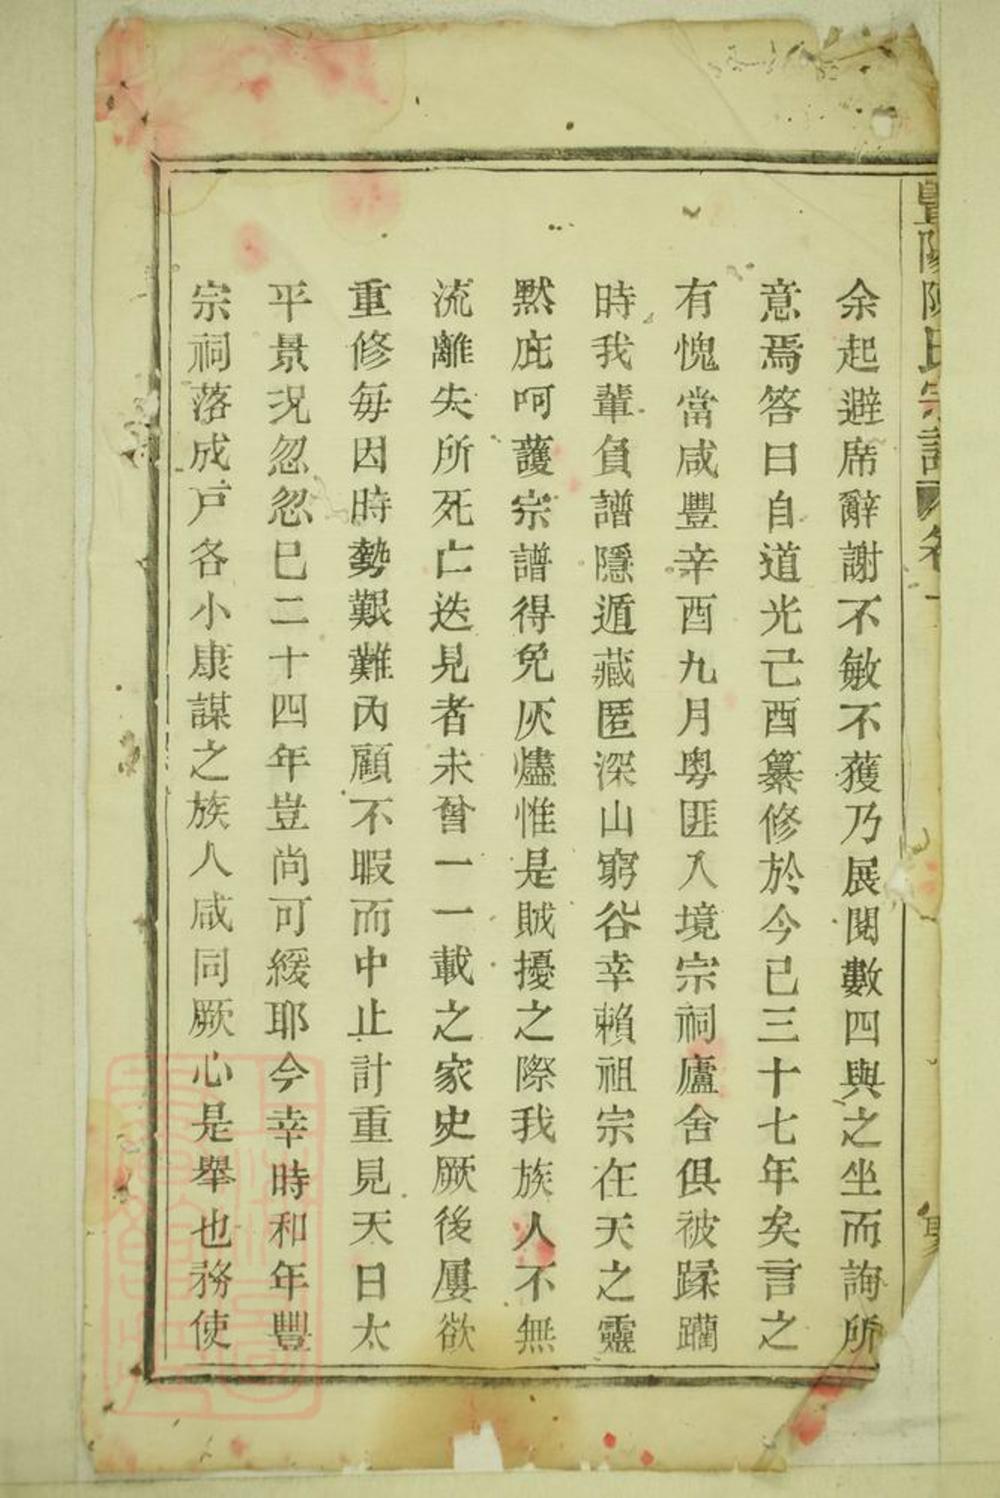 暨陽陳氏宗譜 卷一
余起避席辭謝不敏不獲乃展閱數四與之坐而詢所
意焉答曰自道光己酉纂修於今已三十七年矣言之
有愧當咸豐辛酉九月粤匪入境宗祠廬舍俱被蹂躪
時我輩負譜隱遁藏匿深山窮谷幸賴祖宗在天之靈
黙庇呵護宗譜得免灰燼惟是賊擾之際我族人不無
流離失所死亡迭見者未曾一一載之家史厥後屢欲
重修每因時勢艱難內顧不暇而中止計重見天日太
平景况忽忽已二十四年豈尚可緩耶今幸時和年豐
宗祠落成戸各小康謀之族人咸同厥心是舉也務使